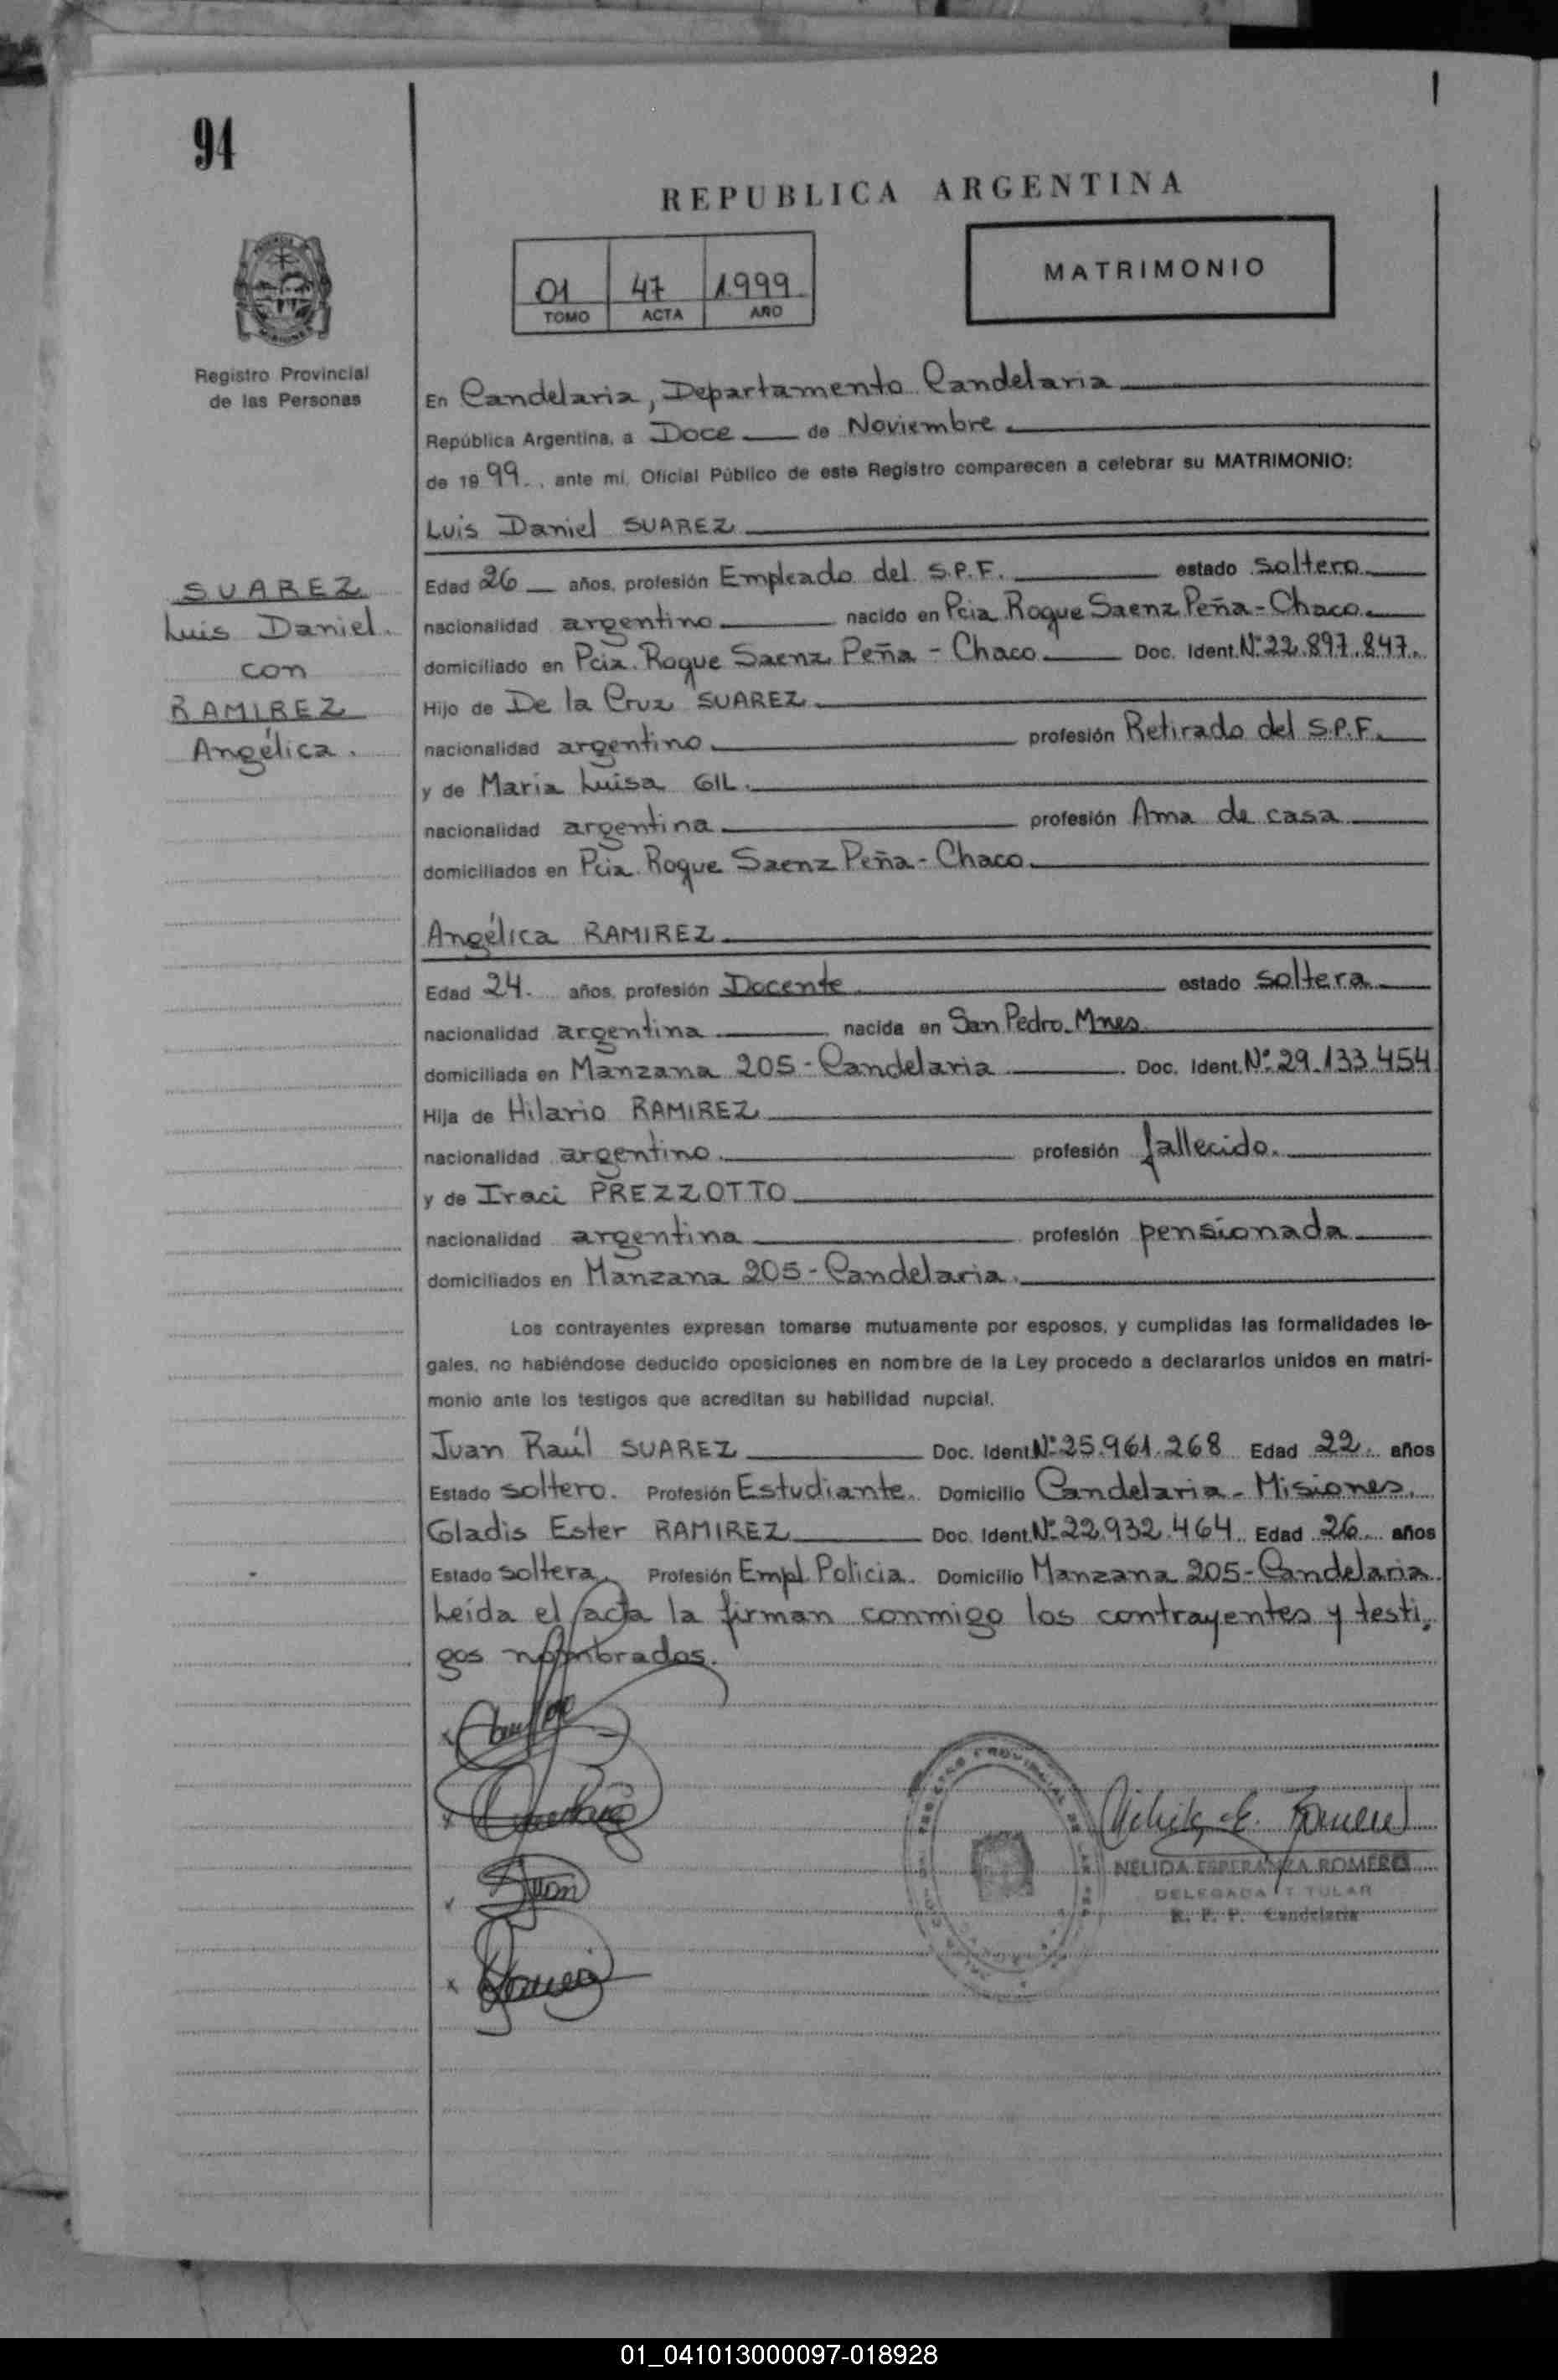 94
REPUBLICA ARGENTINA
01 47 1.999
TOMO ACTA AÑO
MATRIMONIO
Registro Provincial
de las Personas
SUAREZ
Luis Daniel.
con
RAMIREZ
Angélica.
En Candelaria, Departamento Candelaria
República Argentina, a Doce de Noviembre
de 1999., ante mi, Oficial Público de este Registro comparecen a celebrar su MATRIMONIO:
Luis Daniel SUAREZ
Edad 26 años, profesión Empleado del S.P.F. estado soltero
nacionalidad argentino nacido en Pcia. Roque Saenz Peña - Chaco.
domiciliado en Pcia. Roque Saenz Peña - Chaco Doc. Ident. Nº 22.897.847.
Hijo de De la Cruz SUAREZ
nacionalidad argentino profesión Retirado del S.P.F.
y de Maria Luisa GIL.
nacionalidad argentina profesión Ama de casa
domiciliados en Pcia. Roque Saenz Peña - Chaco.
Angélica RAMIREZ
Edad 24. años, profesión Docente estado soltera
nacionalidad argentina nacida en San Pedro. Mnes.
domiciliada en Manzana 205 - Candelaria Doc. Ident. Nº 29.133.454
Hija de Hilario RAMIREZ
nacionalidad argentino profesión fallecido.
y de Iraci PREZZOTTO
nacionalidad argentina profesión pensionada
domiciliados en Manzana 205 - Candelaria.
Los contrayentes expresan tomarse mutuamente por esposos, y cumplidas las formalidades le-
gales, no habiéndose deducido oposiciones en nombre de la Ley procedo a declararlos unidos en matri-
monio ante los testigos que acreditan su habilidad nupcial.
Juan Raúl SUAREZ Doc. Ident. Nº 25.961.268 Edad 22. años
Estado soltero. Profesión Estudiante. Domicilio Candelaria - Misiones.
Gladis Ester RAMIREZ Doc. Ident. Nº 22.932.464. Edad 26 años
Estado soltera. Profesión Empl. Policia. Domicilio Manzana 205 - Candelaria.
Leída el acta la firman conmigo los contrayentes y testi-
gos nombrados.
NELIDA ESPERANZA ROMERO
DELEGADA TITULAR
R. P. P. Candelaria
01_041013000097-018928